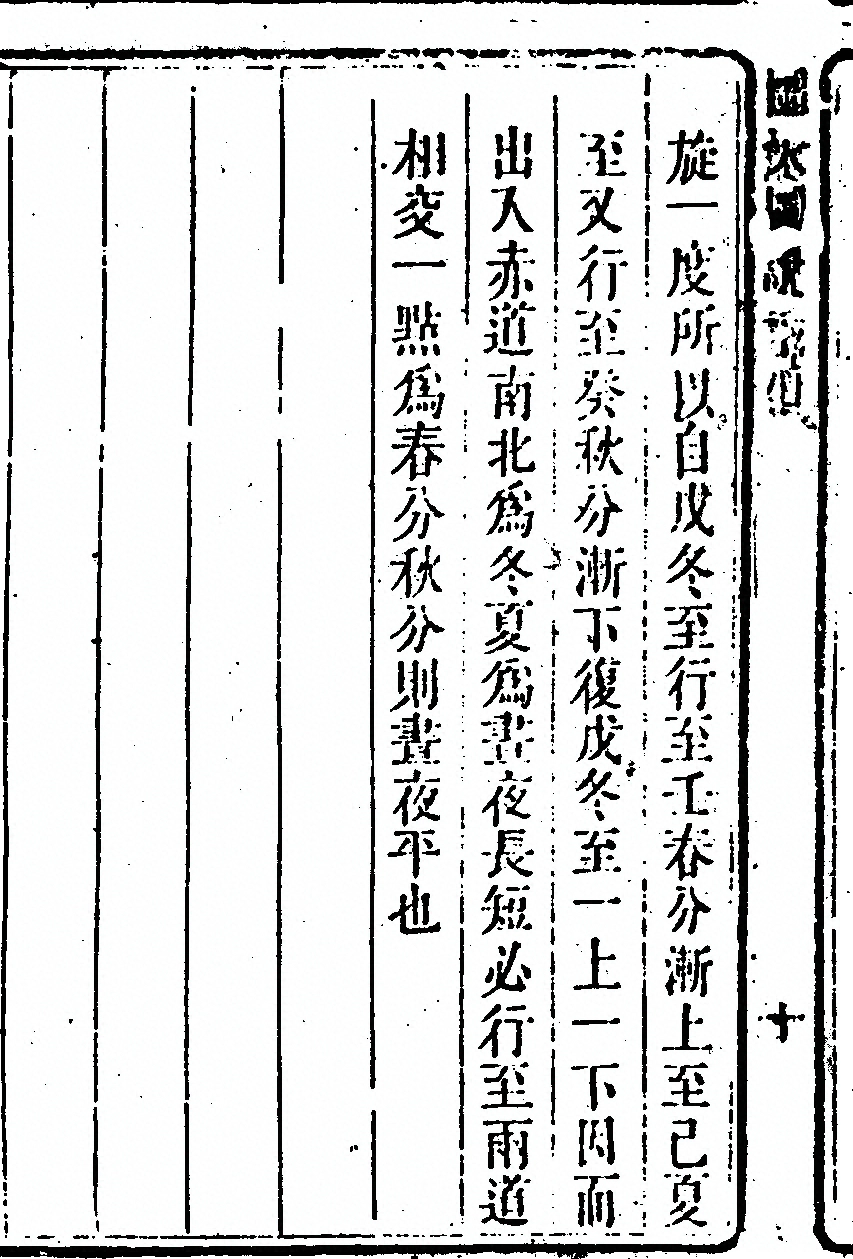 圜天圖說
十
旋一度所以自戊冬至行至壬春分漸上至己夏
至又行至癸秋分漸下復戊冬至一上一下因而
出入赤道南北爲冬夏爲晝夜長短必行至兩道
相交一點爲春分秋分則晝夜平也